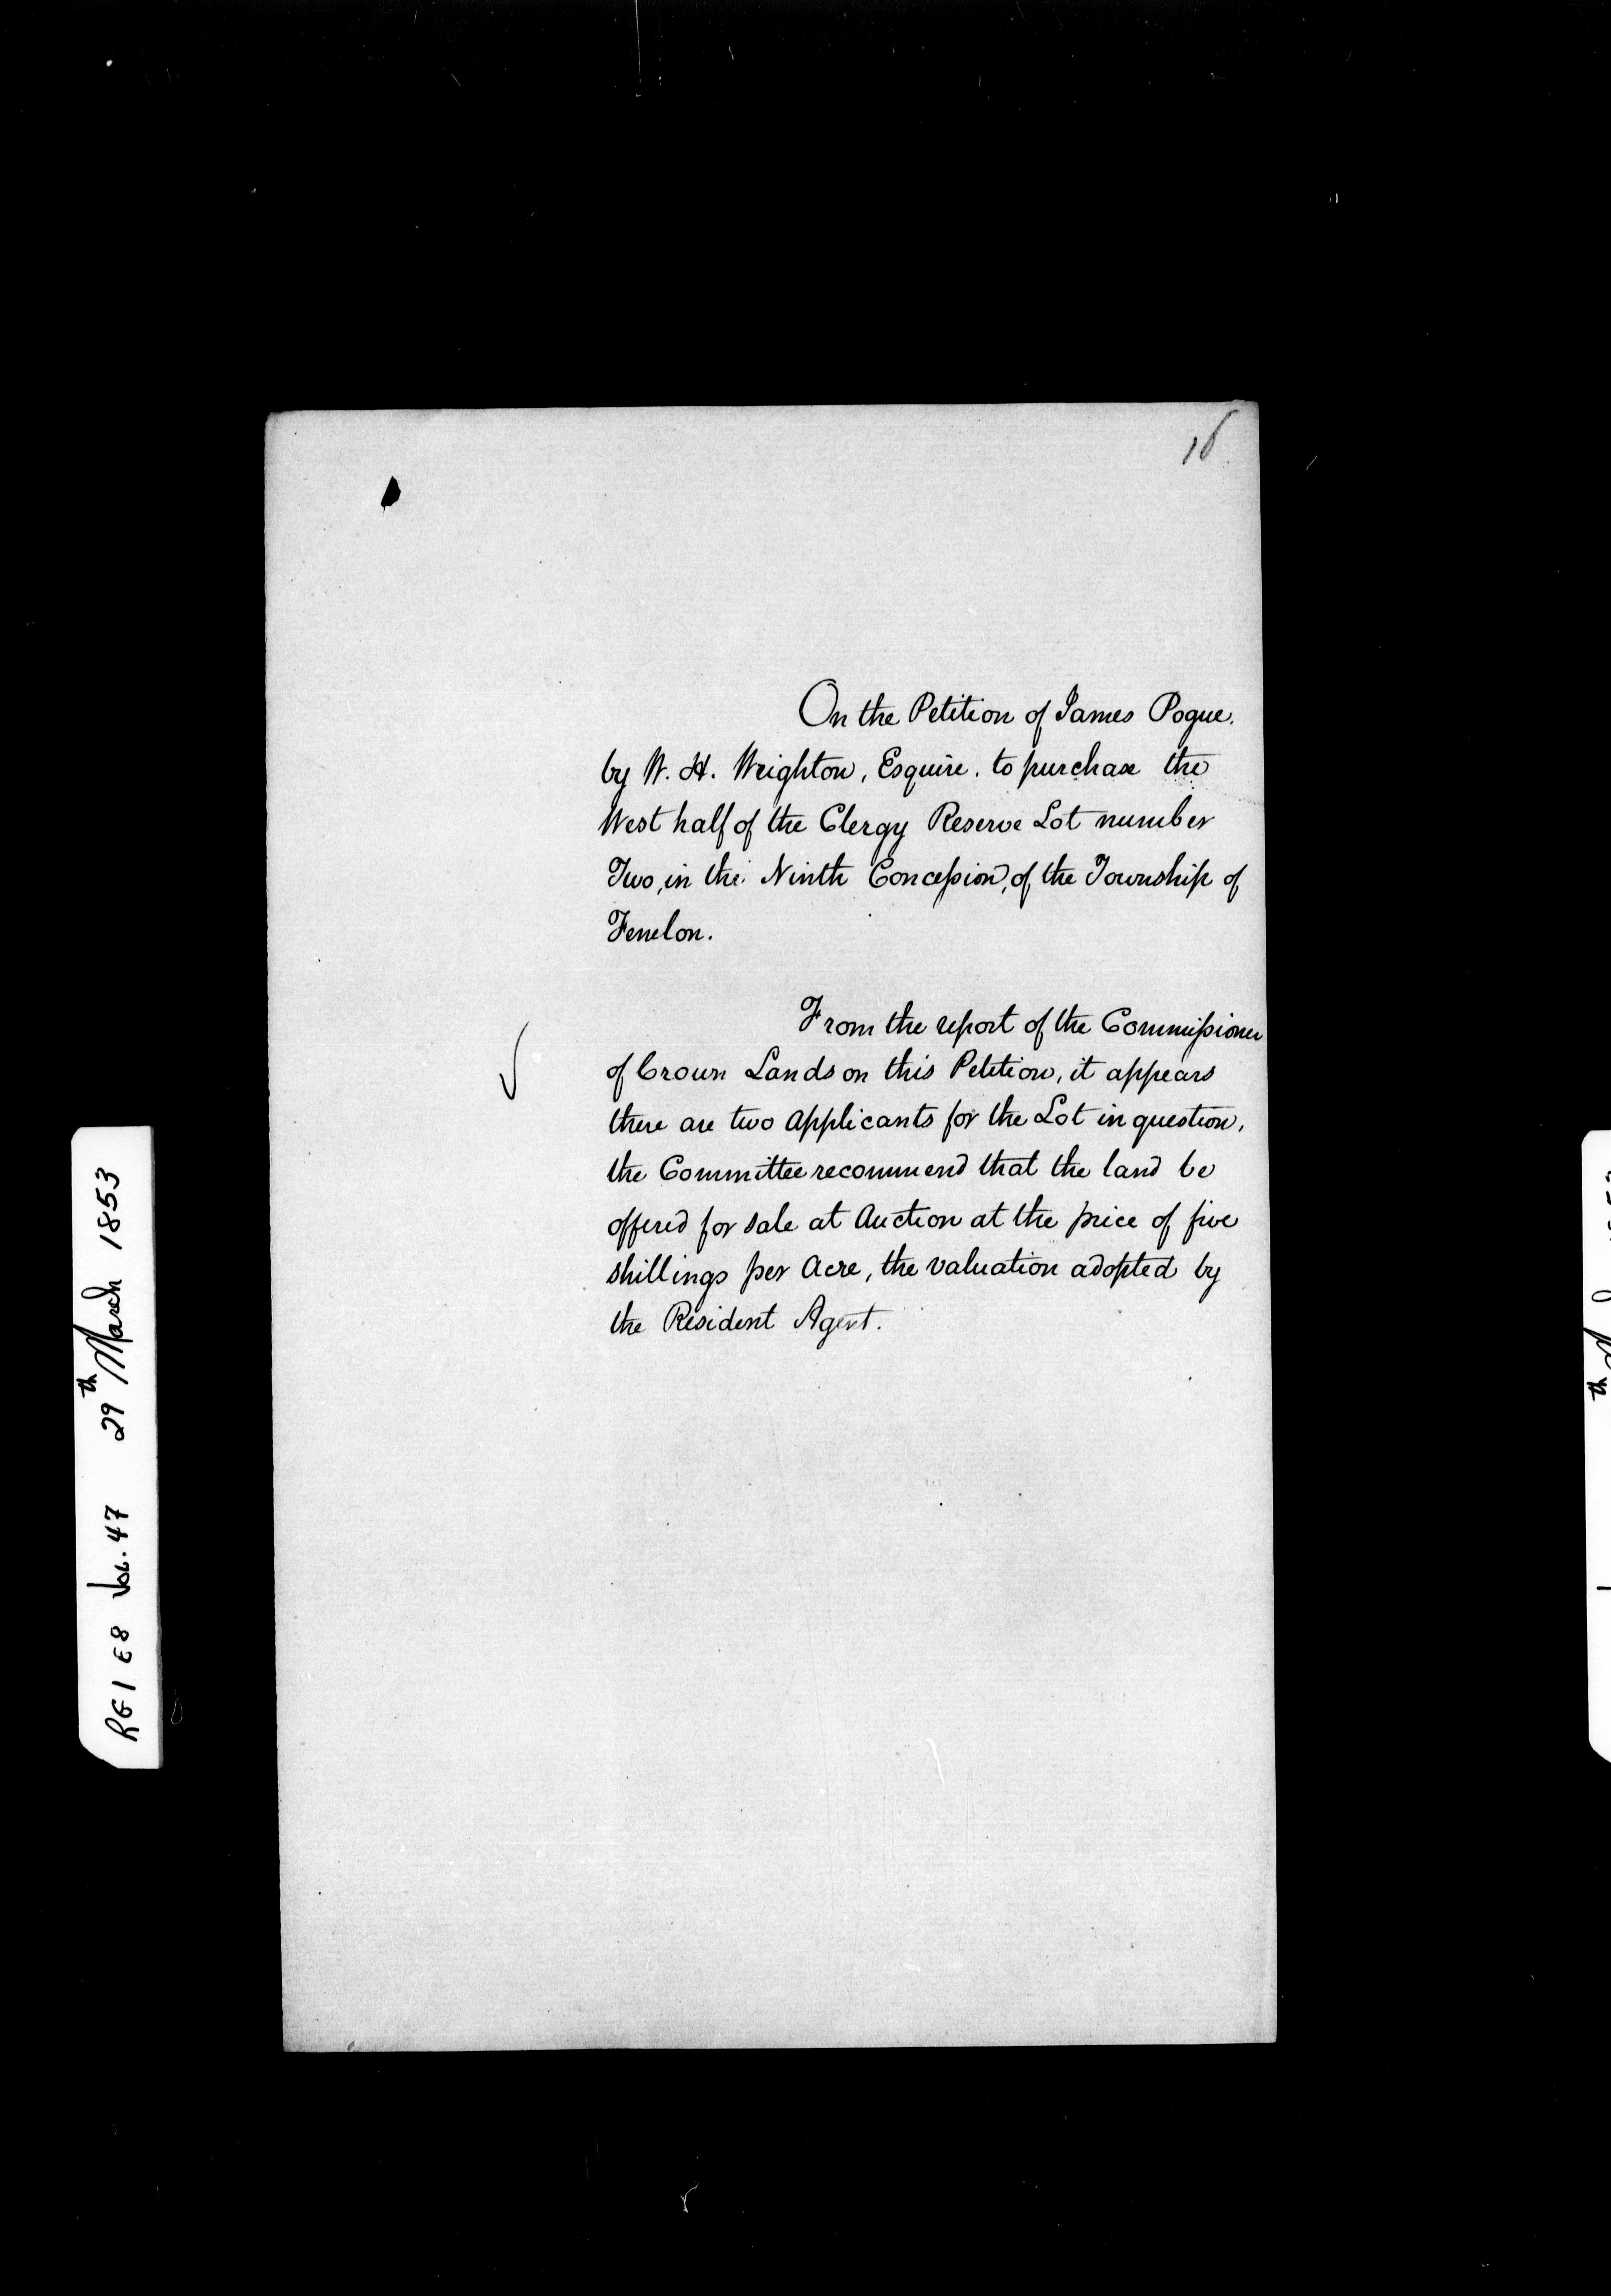 16
On the Petition of James Pogue.
by W. H. Wrighton, Esquire. to purchase the
West half of the Clergy Reserve Lot number
Two, in the Ninth Concession, of the Township of
Fenelon.
From the report of the Commissioner
of Crown Lands on this Petition, it appears
there are two applicants for the Lot in question,
the Committee recommend that the land be
offered for sale at Auction at the price of five
shillings per Acre, the valuation adopted by
the Resident Agent.
RG1 E8 Vol. 47 29th March 1853